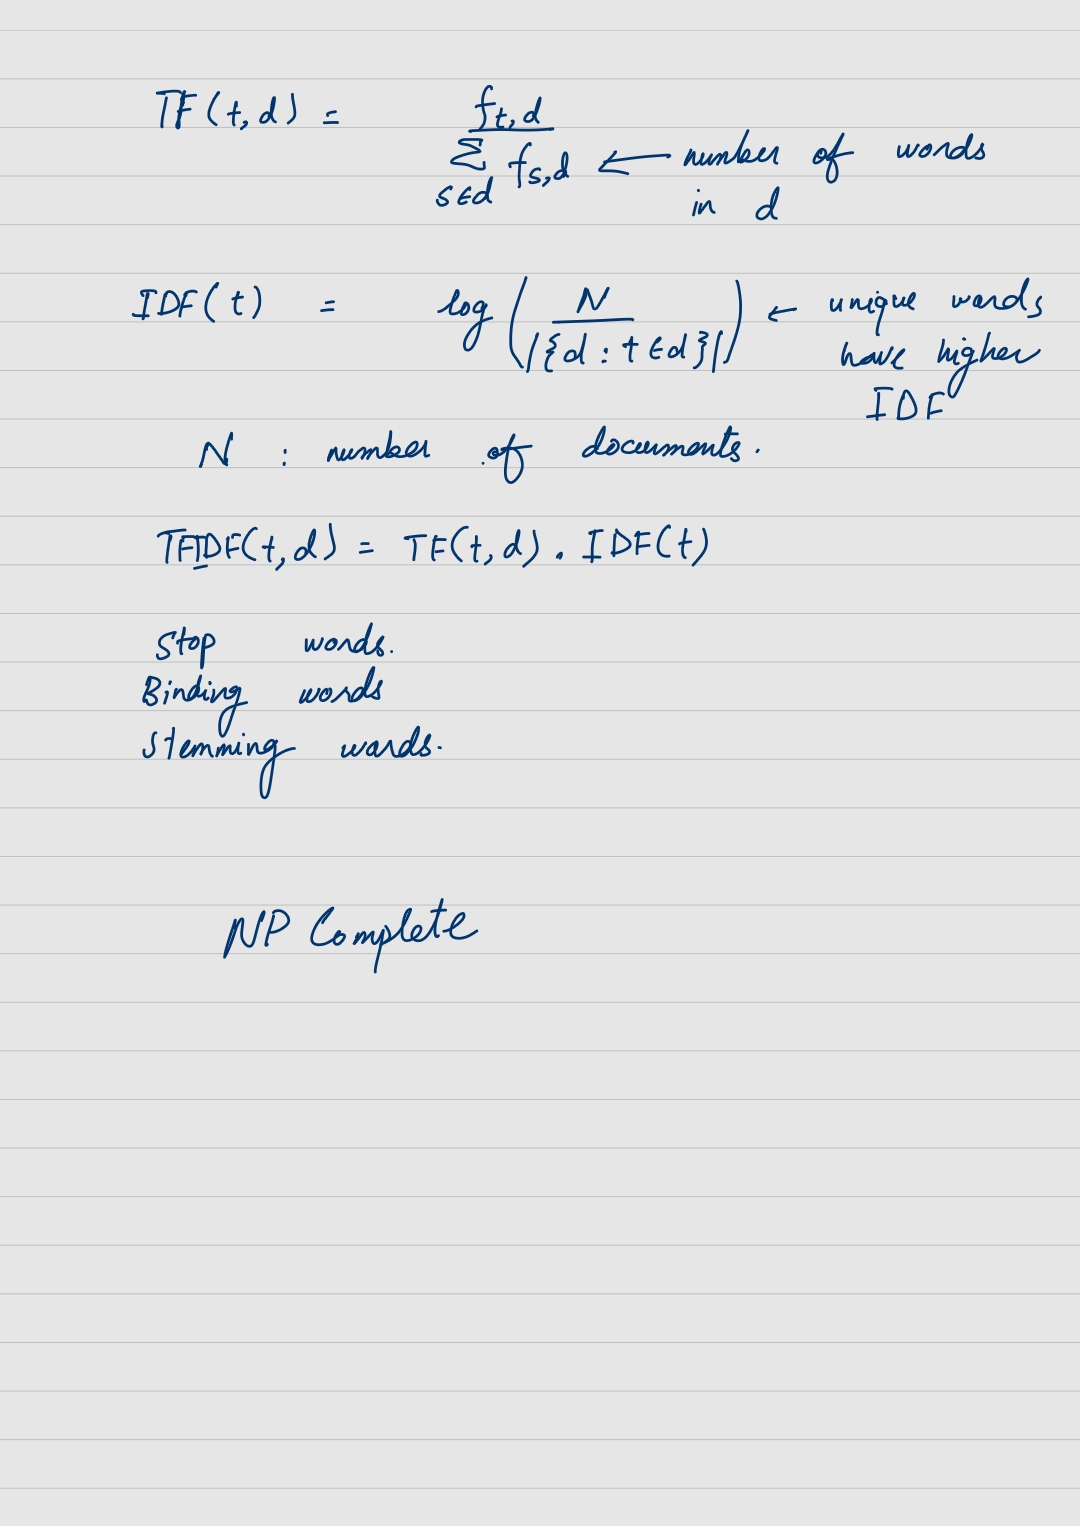 TF(t,d) = f_{t,d} / Σ_{s∈d} f_{s,d} ← number of words
in d
IDF(t) = log ( N / |{d : t ∈ d}| ) ← unique words
have higher
IDF
N : number of documents.
TFIDF(t,d) = TF(t,d) . IDF(t)
Stop words.
Binding words
Stemming words.
NP Complete